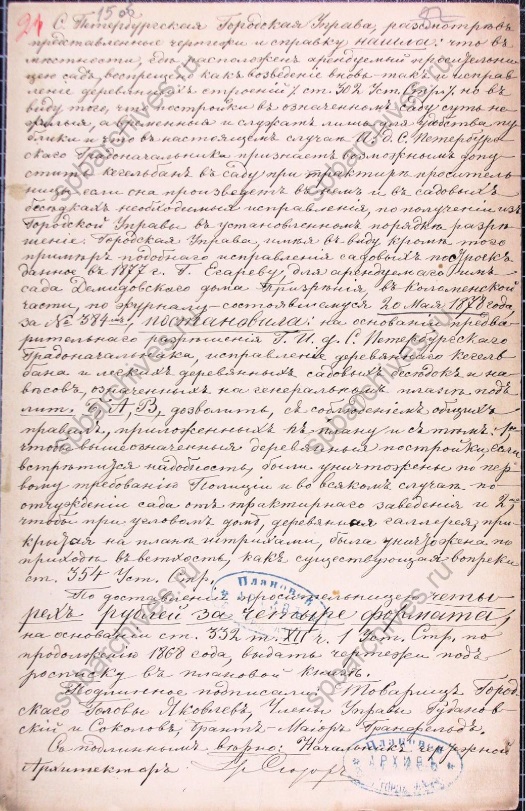 24 1506
С. Петербургская Городская Управа, разсмотрѣвъ
представленные чертежи и справку нашла: что въ
мѣстности, гдѣ расположенъ арендуемый просительни-
цею садъ, воспрещено какъ возведеніе вновь такъ и исправ-
леніе деревянныхъ строеній / ст. 302 Уст. Стр. / но въ
виду того, что постройки въ означенномъ саду суть не-
жилыя, а служатъ лишь для удобства пу-
блики и что въ настоящемъ случаѣ С. Петербург-
скаго Градоначальника признаетъ возможнымъ допу-
стить кегельбанъ въ саду при трактирѣ проситель-
ницы, если она произведетъ въ немъ и въ садовыхъ
бесѣдкахъ необходимыя исправленія, по полученіи изъ
Городской Управы въ установленномъ порядкѣ разрѣ-
шеніе. Городская Управа, имѣя въ виду кромѣ того
примѣръ подобнаго исправленія садовыхъ построекъ
данное въ 1877 г. Г. Егареву, для арендуемаго имъ
сада Демидовскаго дома Призрѣнія въ Коломенской
части, по журналу состоявшемуся 20 Мая 1878 года,
за № 384 , постановила: на основаніи предва-
рительнаго разрѣшенія Г. И. д. С. Петербургскаго
Градоначальника, исправленіе деревяннаго кегель-
бана и легкихъ деревянныхъ садовыхъ бесѣдокъ и на-
вѣсовъ, означенныхъ на генеральномъ планѣ подъ
лит. А, В, дозволить, съ соблюденіемъ общихъ
правилъ, приложенныхъ къ плану и съ тѣмъ:
чтобы вышеозначенныя деревянныя постройки, если
встрѣтится надобность, были уничтожены по пер-
вому требованію Полиціи и во всякомъ случаѣ по
отчужденіи сада отъ трактирнаго заведенія и 2,
чтобы при угловомъ домѣ, деревянная галлерея, при-
крытая на планѣ штрихами, была уничтожена по
приходѣ въ ветхость, какъ существующая вопреки
ст. 354 Уст. Стр.
По доставленіи просительницею четы-
рехъ рублей за четыре формата,
на основаніи ст. 332 т. XII ч. 1 Уст. Стр. по
продолженію 1868 года, выдать чертежи подъ
росписку въ плановой книгѣ.
Подлинное подписали: Товарищъ Город-
скаго Головы Яковлевъ, Члены Управы
скій и Соколовъ, Брантъ-Маіоръ
Съ подлиннымъ вѣрно: Начальникъ Чертежной
Архитекторъ
Плановый
АРХИВЪ
spbarchives.ru